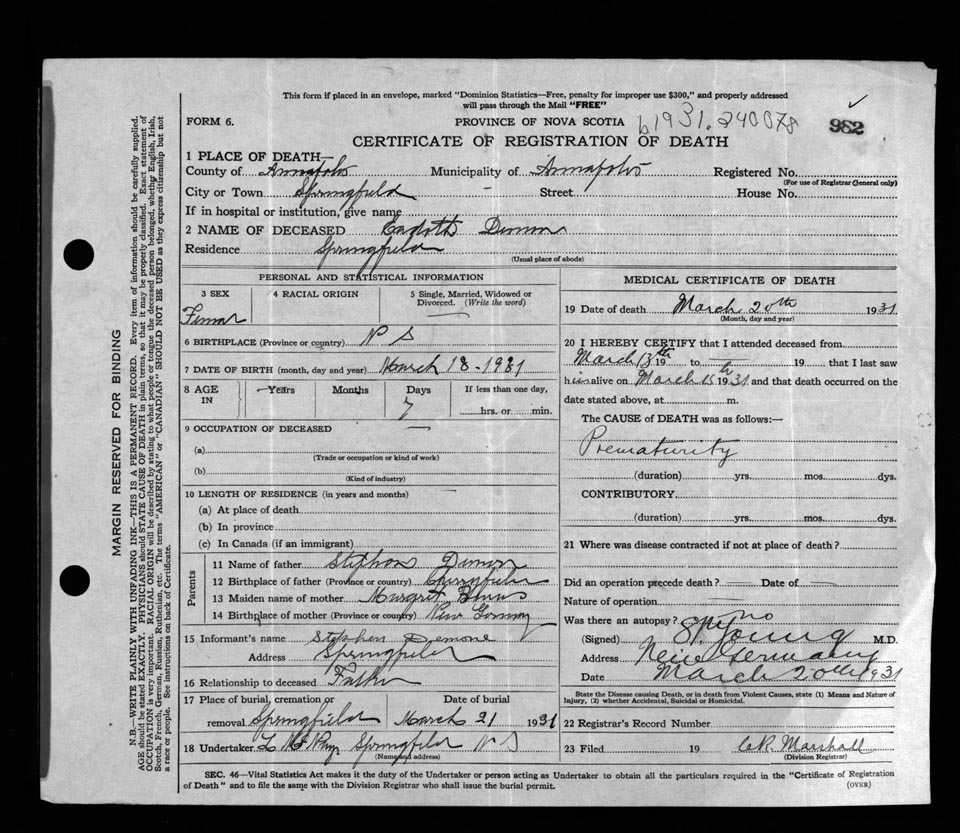 This form if placed in an envelope, marked "Dominion Statistics—Free, penalty for improper use $300," and properly addressed
will pass through the Mail "FREE"
FORM 6. PROVINCE OF NOVA SCOTIA b1931.240078 982
CERTIFICATE OF REGISTRATION OF DEATH
1 PLACE OF DEATH—
County of Annapolis Municipality of Annapolis Registered No.
(For use of Registrar General only)
City or Town Springfield Street House No.
If in hospital or institution, give name
2 NAME OF DECEASED
Residence Springfield
(Usual place of abode)
PERSONAL AND STATISTICAL INFORMATION
3 SEX 4 RACIAL ORIGIN 5 Single, Married, Widowed or Divorced. (Write the word)
6 BIRTHPLACE (Province or country) N S
7 DATE OF BIRTH (month, day and year) March 13-1931
8 AGE IN Years Months Days If less than one day,
7 hrs. or min.
9 OCCUPATION OF DECEASED
(a)
(Trade or occupation or kind of work)
(b)
(Kind of industry)
10 LENGTH OF RESIDENCE (in years and months)
(a) At place of death
(b) In province
(c) In Canada (if an immigrant)
Parents
11 Name of father
12 Birthplace of father (Province or country) Springfield
13 Maiden name of mother Margret
14 Birthplace of mother (Province or country) New Germany
15 Informant's name Stephen Demone
Address Springfield
16 Relationship to deceased Father
17 Place of burial, cremation or removal Springfield Date of burial March 21 1931
18 Undertaker Springfield N S
(Name and address)
MEDICAL CERTIFICATE OF DEATH
19 Date of death March 20th 1931
(Month, day and year)
20 I HEREBY CERTIFY that I attended deceased from
March 13th 19 to 19 that I last saw
h alive on March 15th 1931 and that death occurred on the
date stated above, at m.
The CAUSE of DEATH was as follows:—
Prematurity
(duration) yrs. mos. dys.
CONTRIBUTORY
(duration) yrs. mos. dys.
21 Where was disease contracted if not at place of death?
Did an operation precede death? Date of
Nature of operation
Was there an autopsy? no
(Signed) Young M.D.
Address New Germany
Date March 20th 1931
State the Disease causing Death, or in death from Violent Causes, state (1) Means and Nature of
Injury, (2) whether Accidental, Suicidal or Homicidal.
22 Registrar's Record Number
23 Filed 19 C R Marshall
(Division Registrar)
SEC. 46—Vital Statistics Act makes it the duty of the Undertaker or person acting as Undertaker to obtain all the particulars required in the "Certificate of Registration
of Death" and to file the same with the Division Registrar who shall issue the burial permit. (OVER)
MARGIN RESERVED FOR BINDING
N.B.—WRITE PLAINLY WITH UNFADING INK—THIS IS A PERMANENT RECORD. Every item of information should be carefully supplied.
AGE should be stated EXACTLY. PHYSICIANS should STATE CAUSE OF DEATH in plain terms, so that it may be properly classified. Exact statement of
OCCUPATION is very important. RACIAL ORIGIN will be described by stating to what people or tongue the deceased person belonged, whether English, Irish,
Scotch, French, German, Russian, Ruthenian, etc. The terms "AMERICAN" or "CANADIAN" SHOULD NOT BE USED as they express citizenship but not
a race or people. See instructions on back of Certificate.